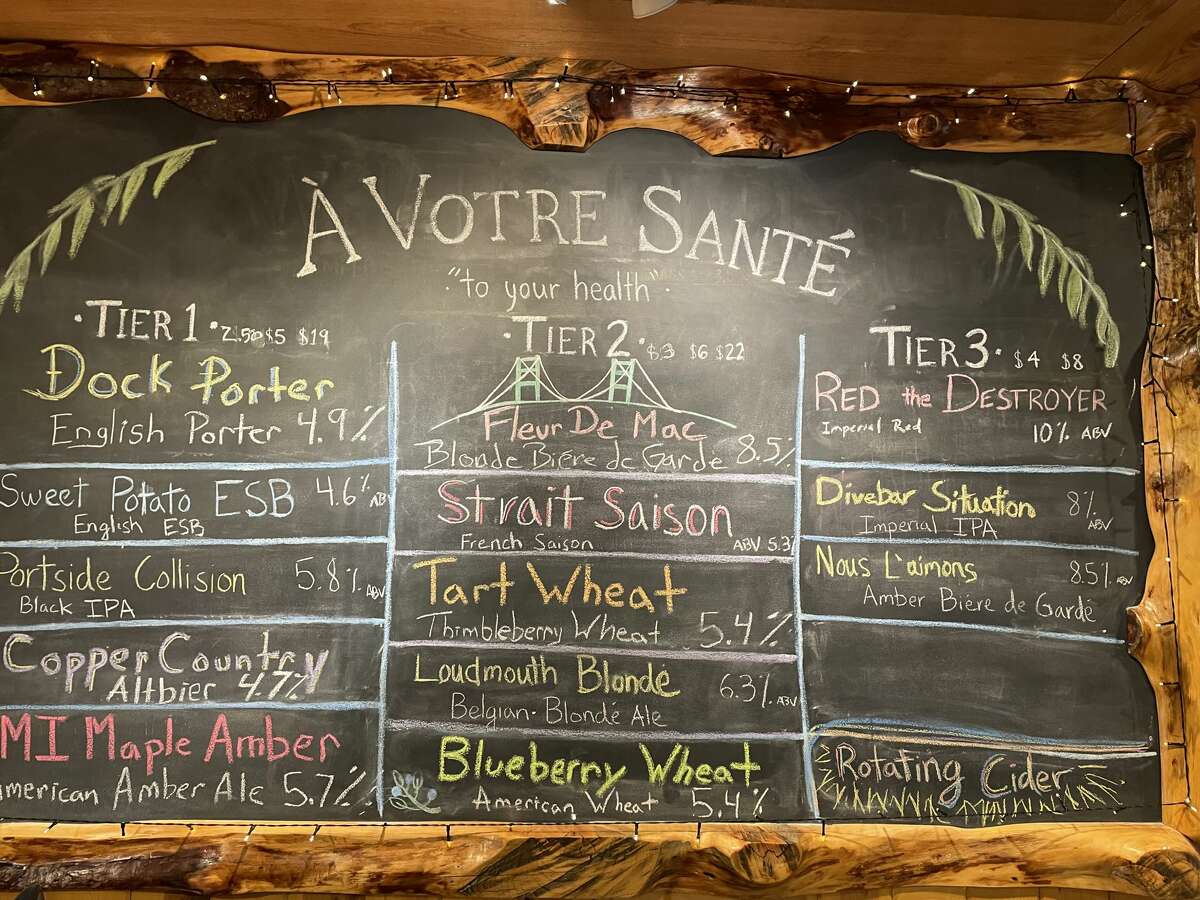 À VOTRE SANTÉ
"to your health"
·TIER 1· 2.50 $5 $19
Dock Porter
English Porter 4.9%
Sweet Potato ESB 4.6% ABV
English ESB
Portside Collision 5.8% ABV
Black IPA
Copper Country
Altbier 4.7%
MI Maple Amber
American Amber Ale 5.7%
·TIER 2· $3 $6 $22
Fleur De Mac
Blonde Biére de Garde 8.5%
Strait Saison
French Saison ABV 5.3%
Tart Wheat
Thimbleberry Wheat 5.4%
Loudmouth Blonde 6.3% ABV
Belgian-Blondé Ale
Blueberry Wheat
American Wheat 5.4%
TIER 3· $4 $8
RED the DESTROYER
Imperial Red 10% ABV
Divebar Situation 8% ABV
Imperial IPA
Nous L'aimons 8.5% ABV
Amber Biére de Gardé
Rotating Cider